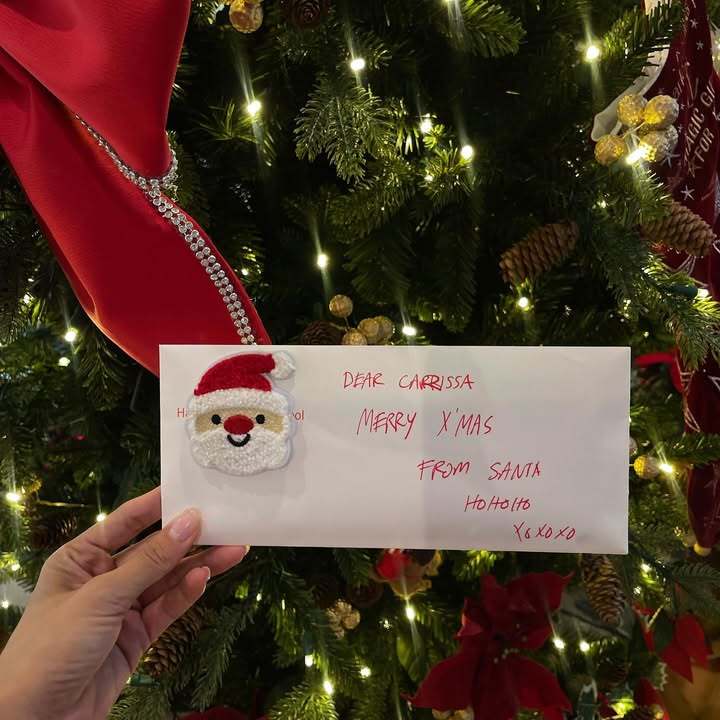 DEAR CARRISSA
MERRY X'MAS
FROM SANTA
HOHOHO
XOXOXO